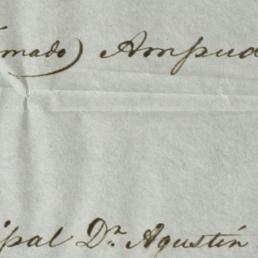 mado) Ampud
ipal Dn. Agustín